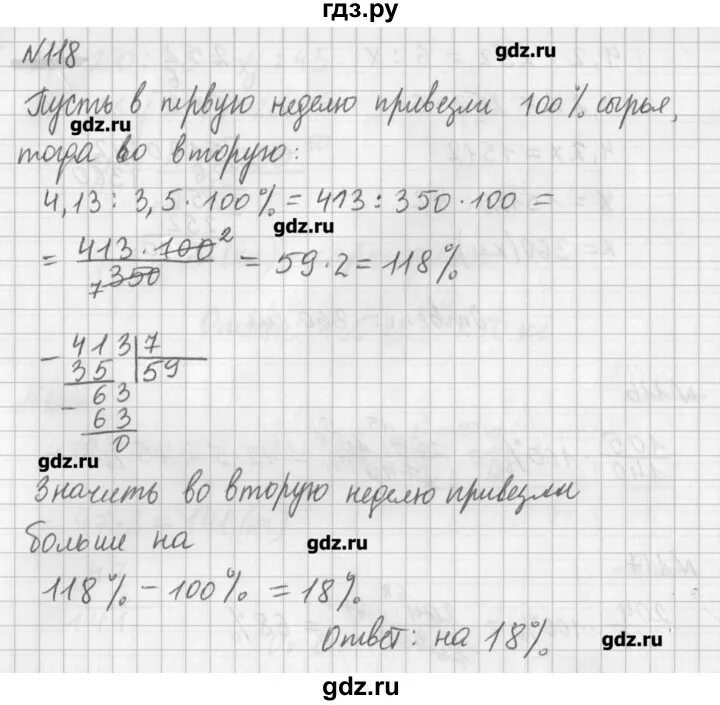 гдз.ру
gdz.ru
N118
Пусть в первую неделю привезли 100% сырья,
gdz.ru
тогда во вторую:
4,13 : 3,5 · 100% = 413 : 350 · 100 =
gdz.ru
= 413 · 100 2 / 7 350 = 59 · 2 = 118%
- 413 | 7
35 | 59
- 63
63
0
gdz.ru
Значить во вторую неделю привезли
больше на
gdz.ru
118% - 100% = 18%
Ответ: на 18%
gdz.ru
gdz.ru